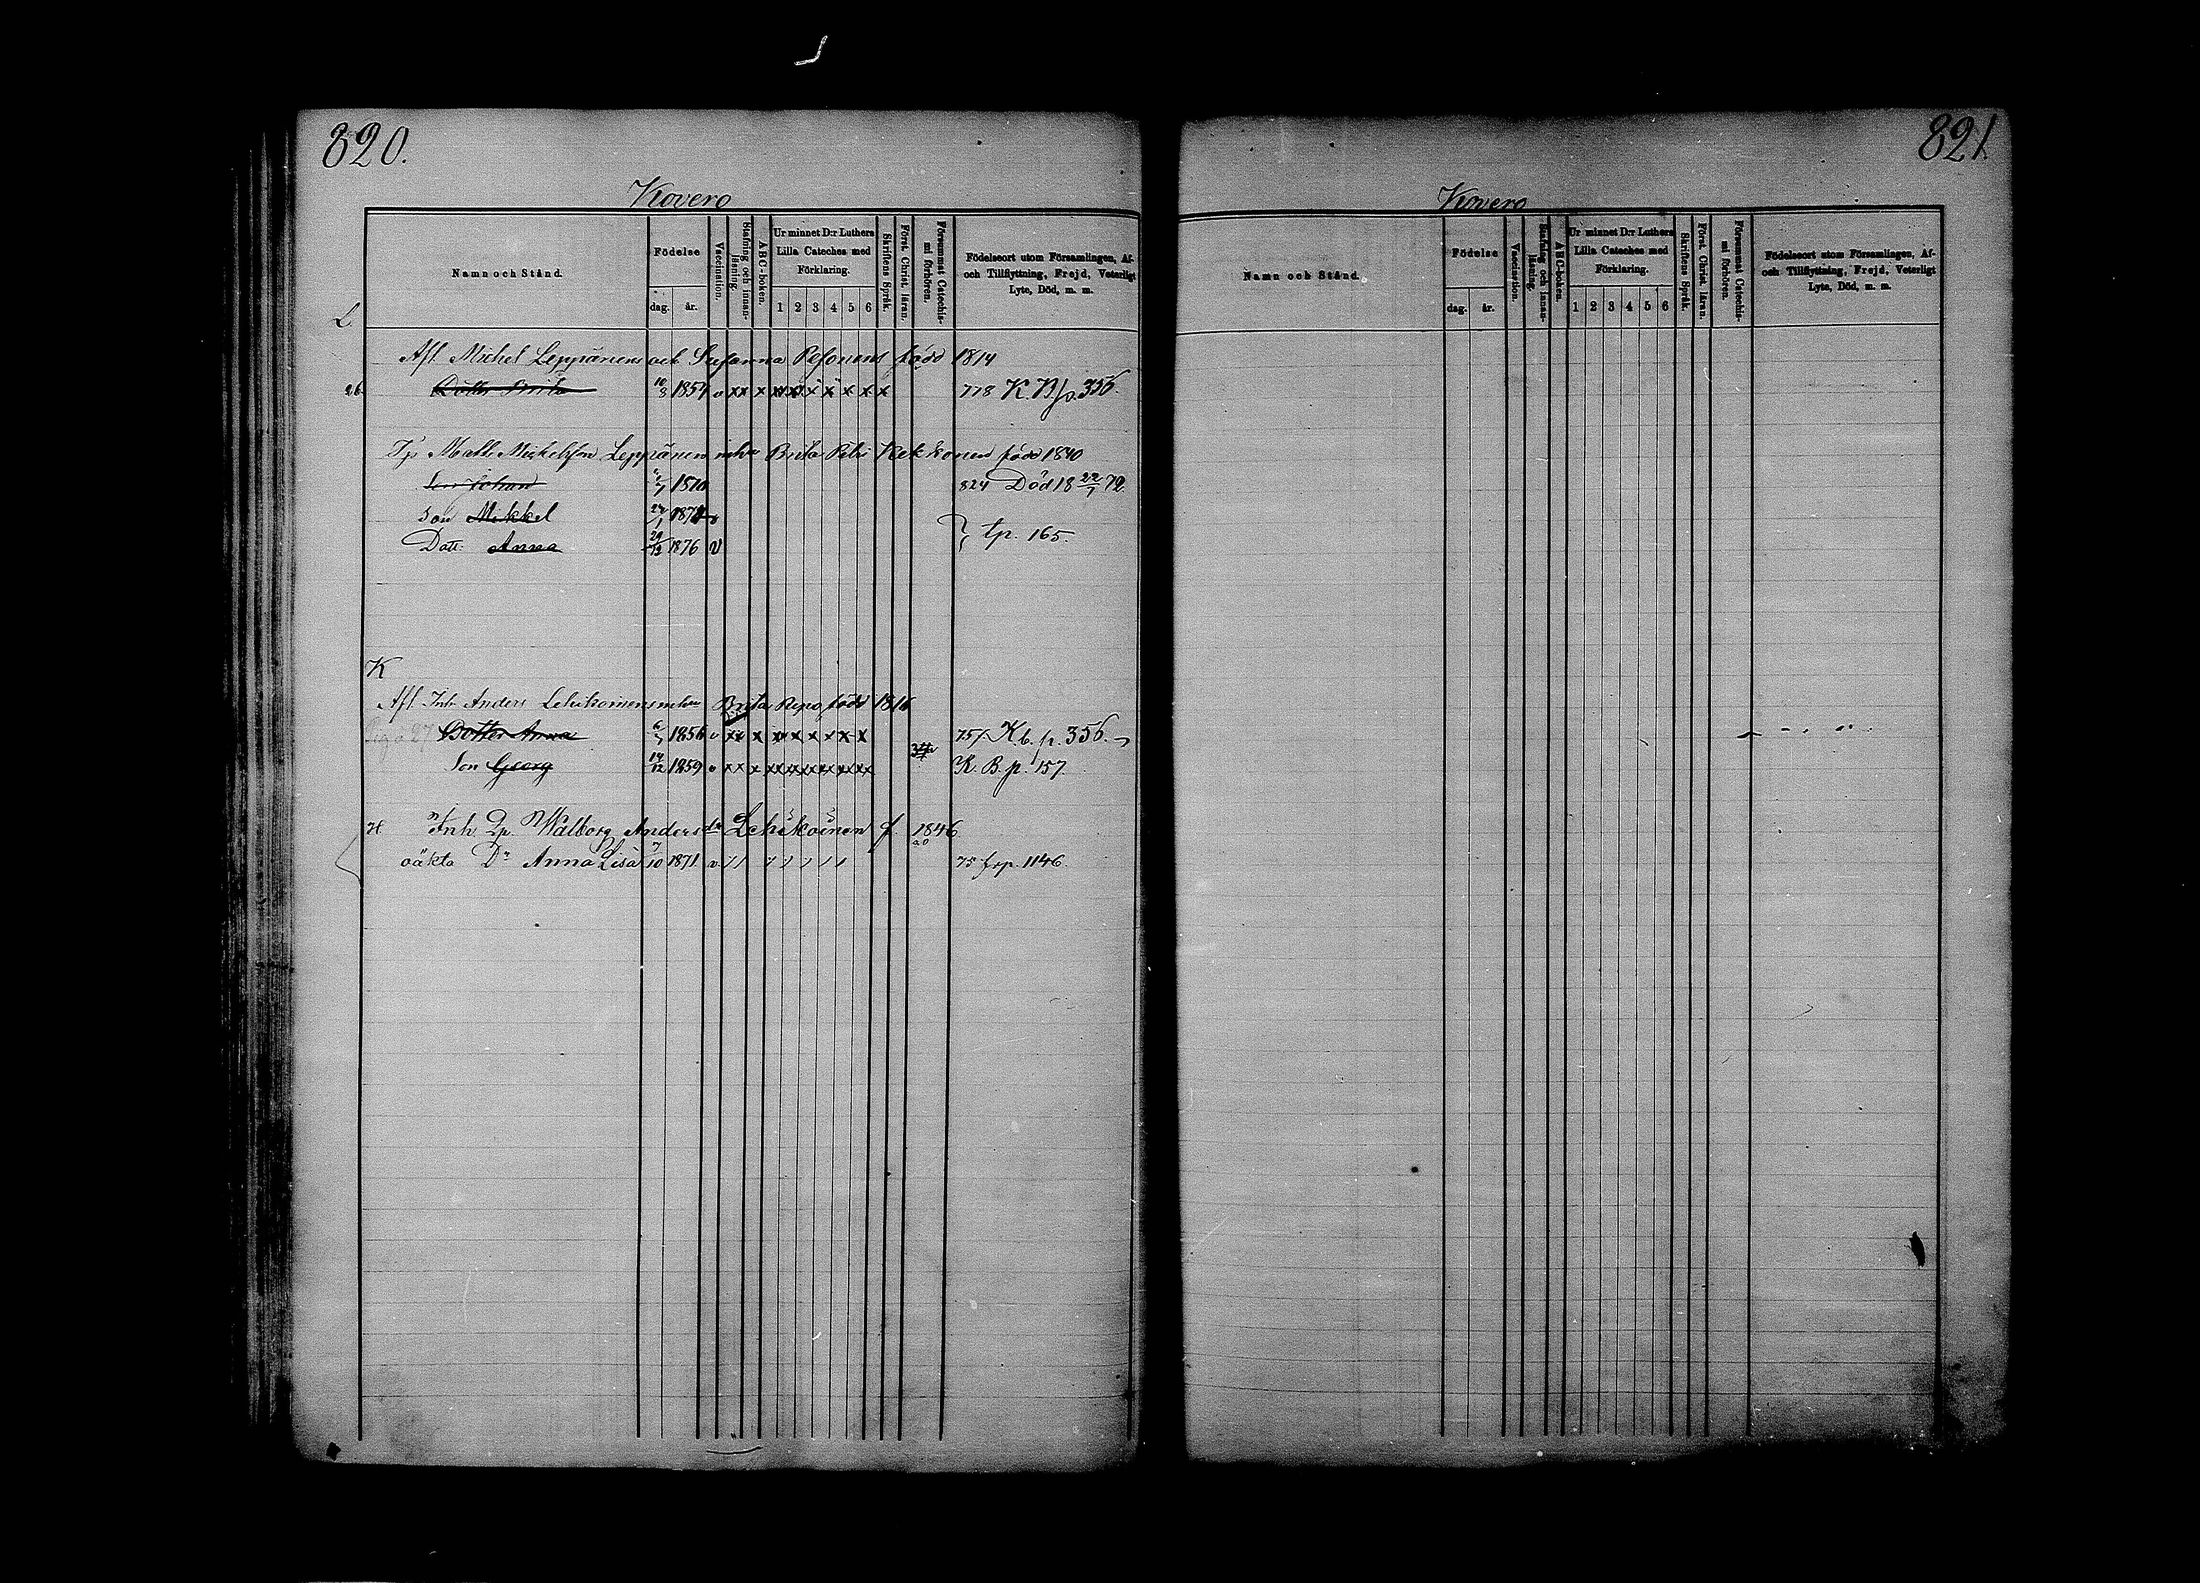 820.
Kovero
Namn och Stånd.
Födelse
dag. år.
Vaccination.
Stafning och innan-läsning.
ABC-boken.
Ur minnet D:r Luthers Lilla Cateches med Förklaring.
1 2 3 4 5 6
Skriftens Språk.
Först. Christ. läran.
Försummat Catechis-mi förhören.
Födelseort utom Församlingen, Af- och Tillflyttning, Frejd, Veterligt Lyte, Död, m. m.
L
Afl. Michel Leppänens och Susanna född 1814
26 Dotter Brita 10/3 1854 v xx x x x x x x x x 778 K.B.p. 356.
Matts Mickelsson Leppänen Brita Petri Kekkonen född 1840
Son Johan 1870 824 Död 18 22/7 72
Son Mikkel 187
Dott. Anna 29/12 1876 v } tp. 165.
K
Afl. Inh. Anders Lehikoinens Brita Repo född 1816
27 Dotter Anna 1856 v xx x x x x x x x 757. K.b.p. 356.
Son Georg 14/12 1859 v xx x xx xx xx xx xx xx K.B.p. 157.
Inh. Qp. Walborg Andersdr Lehikoinen f. 1846
oäkta Dr Anna Lisa 7/10 1871 v. 75 fxp. 1146.
821
Kovero
Namn och Stånd.
Födelse
dag. år.
Vaccination.
Stafning och innan-läsning.
ABC-boken.
Ur minnet D:r Luthers Lilla Cateches med Förklaring.
1 2 3 4 5 6
Skriftens Språk.
Först. Christ. läran.
Försummat Catechis-mi förhören.
Födelseort utom Församlingen, Af- och Tillflyttning, Frejd, Veterligt Lyte, Död, m. m.